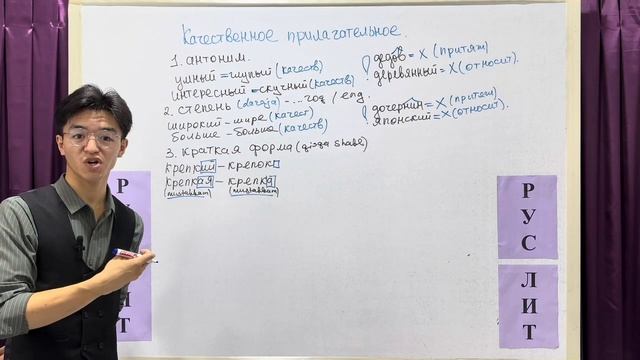 Качественное прилагательное.
1. антоним.
умный = глупый (качеств)
интересный = скучный (качеств)
2. степень (daraja) - ... год / eng.
широкий - шире (качест)
больше - больше (качеств)
3. Краткая форма (qisqa shakl)
крепкий - крепок
крепкая - крепка
(mustahkam) (mustahkam)
! дедов = X (притяж)
деревянный = X (относит).
! дочернин = X (притяж)
японский = X (относит).
РУС
ЛИТ